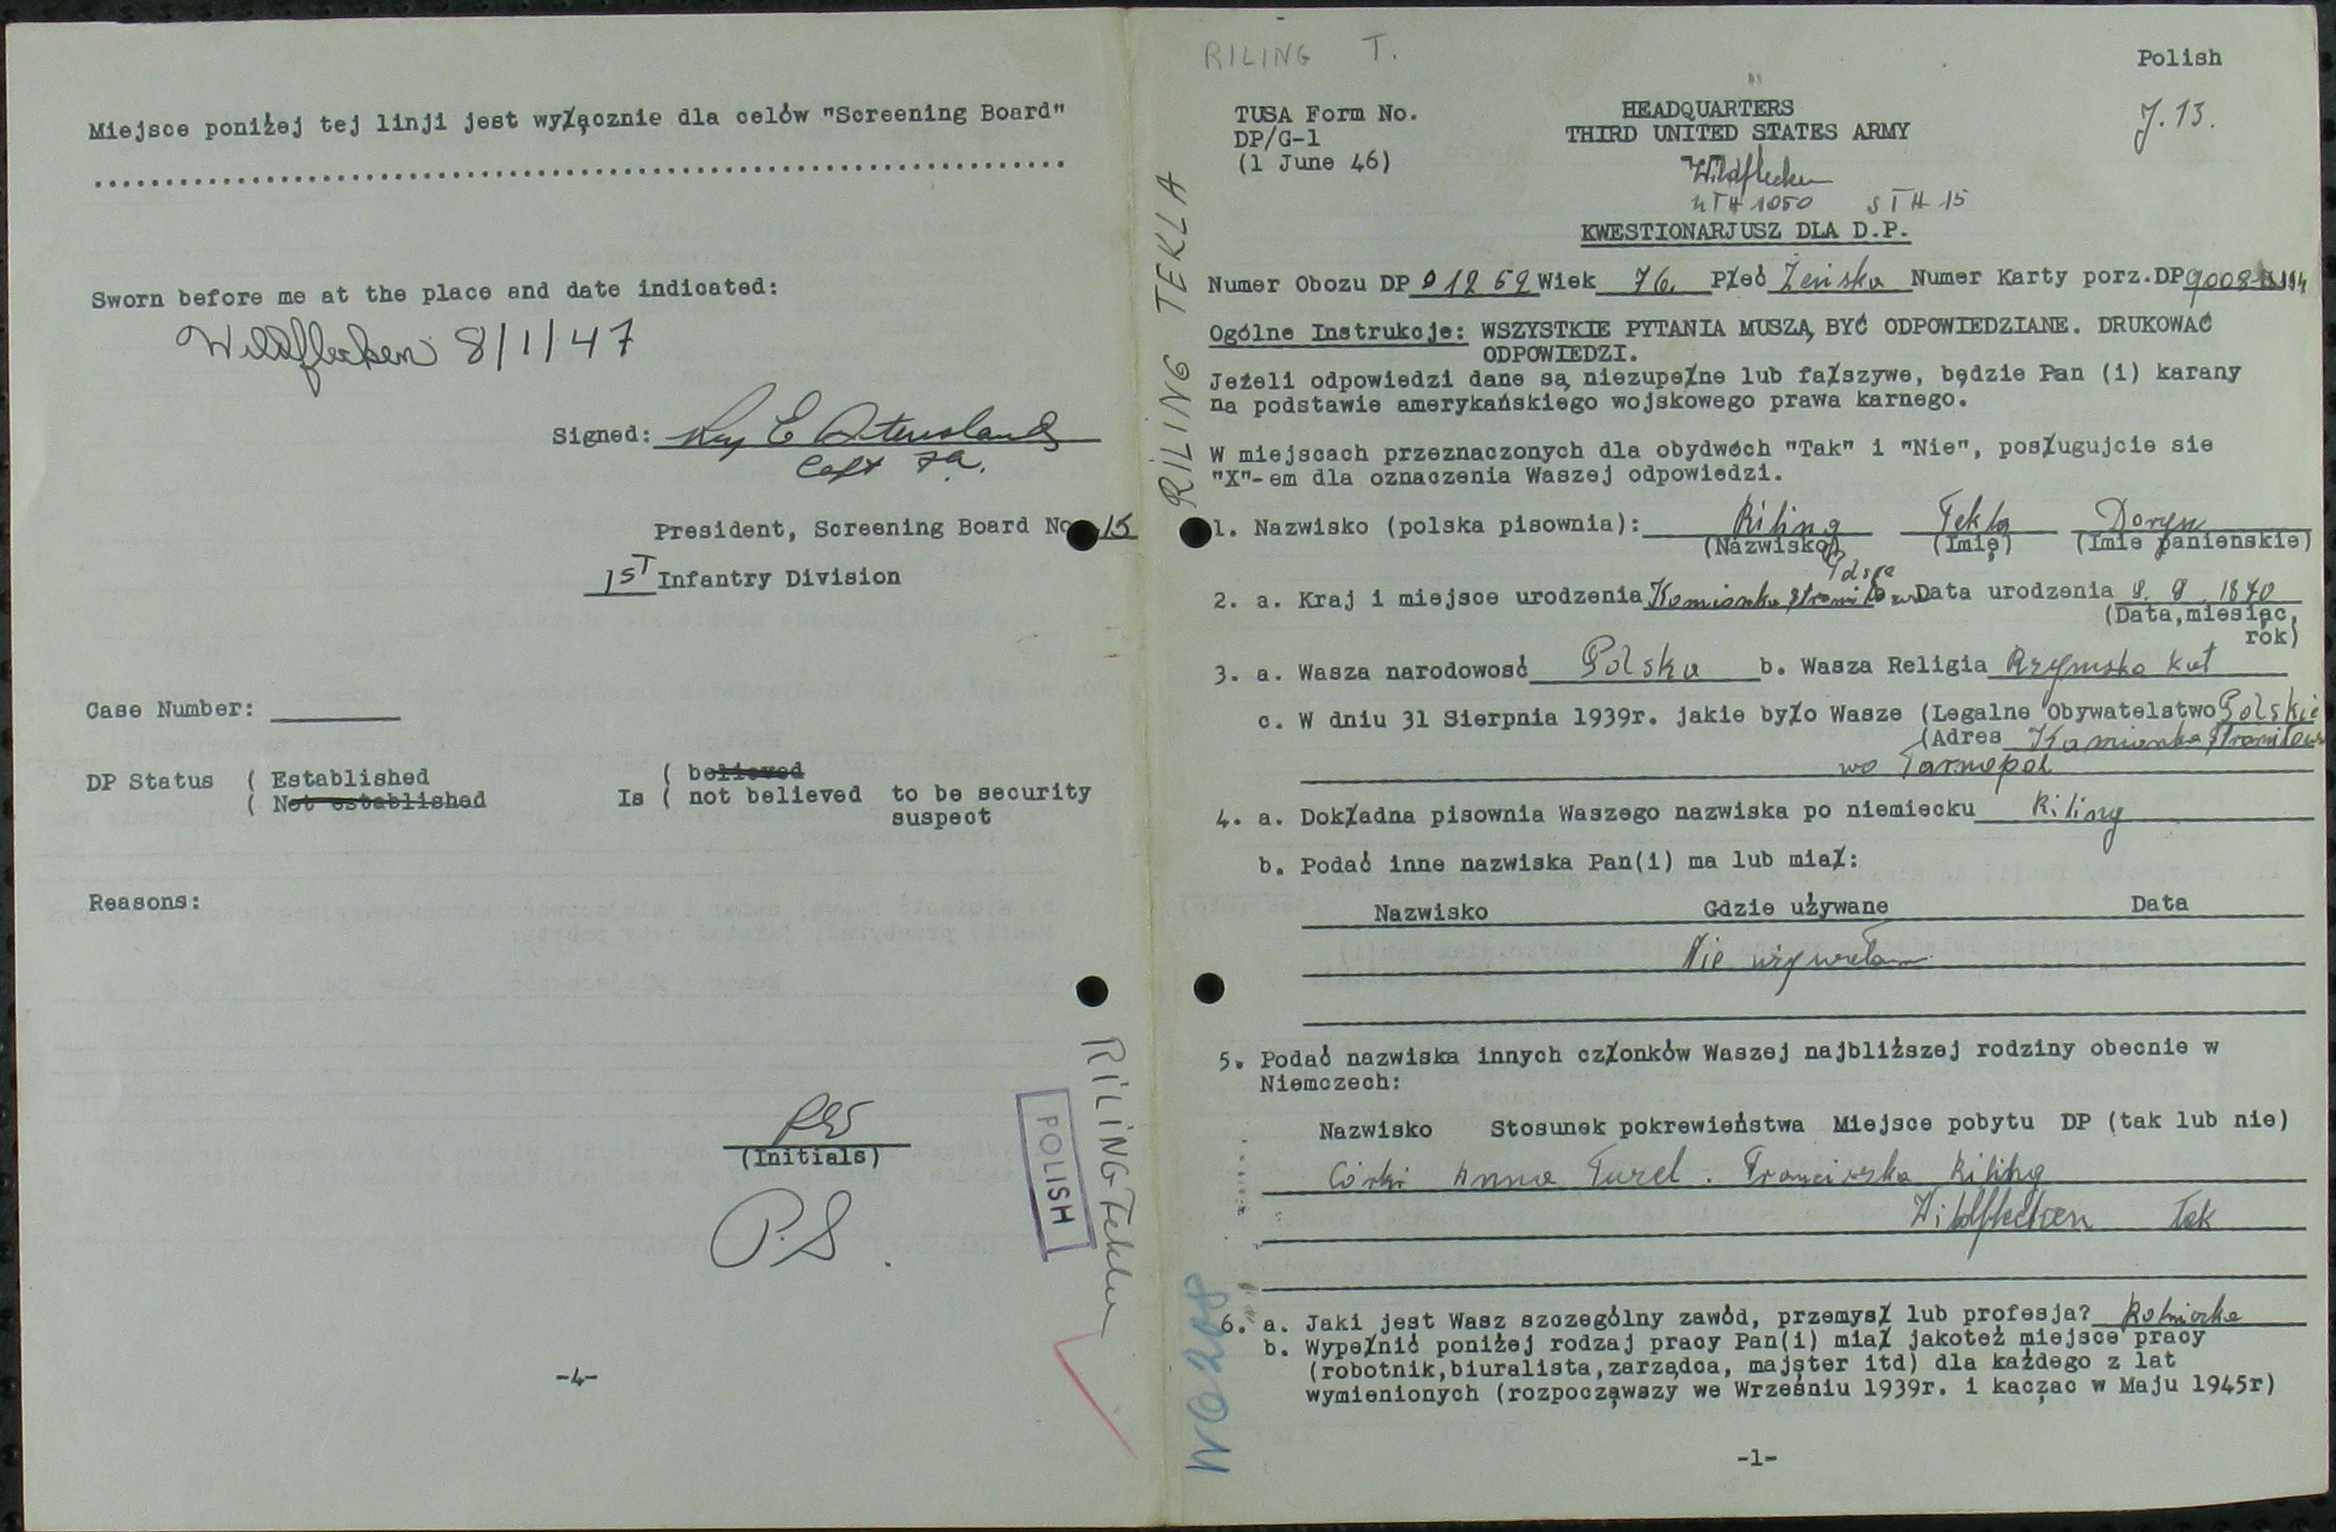 Miejsce poniżej tej linji jest wyłącznie dla celów "Screening Board"
Sworn before me at the place and date indicated:
Wildflecken 8/1/47
Signed:
Capt FA.
President, Screening Board No. 15
1ST Infantry Division
Case Number:
DP Status ( Established
( Not established
Is ( believed
( not believed to be security suspect
Reasons:
(Initials)
P.S.
-4-
POLISH
RILING Tekla
RILING T.
Polish
J. 13.
TUSA Form No.
DP/G-1
(1 June 46)
HEADQUARTERS
THIRD UNITED STATES ARMY
Wildflecken
NTH 1050 STH 15
KWESTIONARJUSZ DLA D.P.
RILING TEKLA
Numer Obozu DP Wiek 76. Płeć Żeńska Numer Karty porz.DP
Ogólne Instrukcje: WSZYSTKIE PYTANIA MUSZĄ BYĆ ODPOWIEDZIANE. DRUKOWAĆ
ODPOWIEDZI.
Jeżeli odpowiedzi dane są niezupełne lub fałszywe, będzie Pan (i) karany
na podstawie amerykańskiego wojskowego prawa karnego.
W miejscach przeznaczonych dla obydwóch "Tak" i "Nie", posługujcie sie
"X"-em dla oznaczenia Waszej odpowiedzi.
1. Nazwisko (polska pisownia): Riling Tekla
(Nazwisko) (Imię) (Imie panienskie)
2. a. Kraj i miejsce urodzenia Kamionka Data urodzenia 8. 9. 1870
(Data,miesiąc,
rok)
3. a. Wasza narodowosć Polska b. Wasza Religia Rzymsko kat
c. W dniu 31 Sierpnia 1939r. jakie było Wasze (Legalne Obywatelstwo Polskie
(Adres Kamionka
wo Tarnopol
4. a. Dokładna pisownia Waszego nazwiska po niemiecku Riling
b. Podać inne nazwiska Pan(i) ma lub miał:
Nazwisko Gdzie używane Data
Nie
5. Podać nazwiska innych członków Waszej najbliższej rodziny obecnie w
Niemczech:
Nazwisko Stosunek pokrewieństwa Miejsce pobytu DP (tak lub nie)
Córki Anna Turel. Franciszka Riling
Wildflecken Tak
6. a. Jaki jest Wasz szczególny zawód, przemysł lub profesja? Rolniczka
b. Wypełnić poniżej rodzaj pracy Pan(i) miał jakoteż miejsce pracy
(robotnik,biuralista,zarządca, majster itd) dla każdego z lat
wymienionych (rozpocząwszy we Wrześniu 1939r. i kacząc w Maju 1945r)
-1-